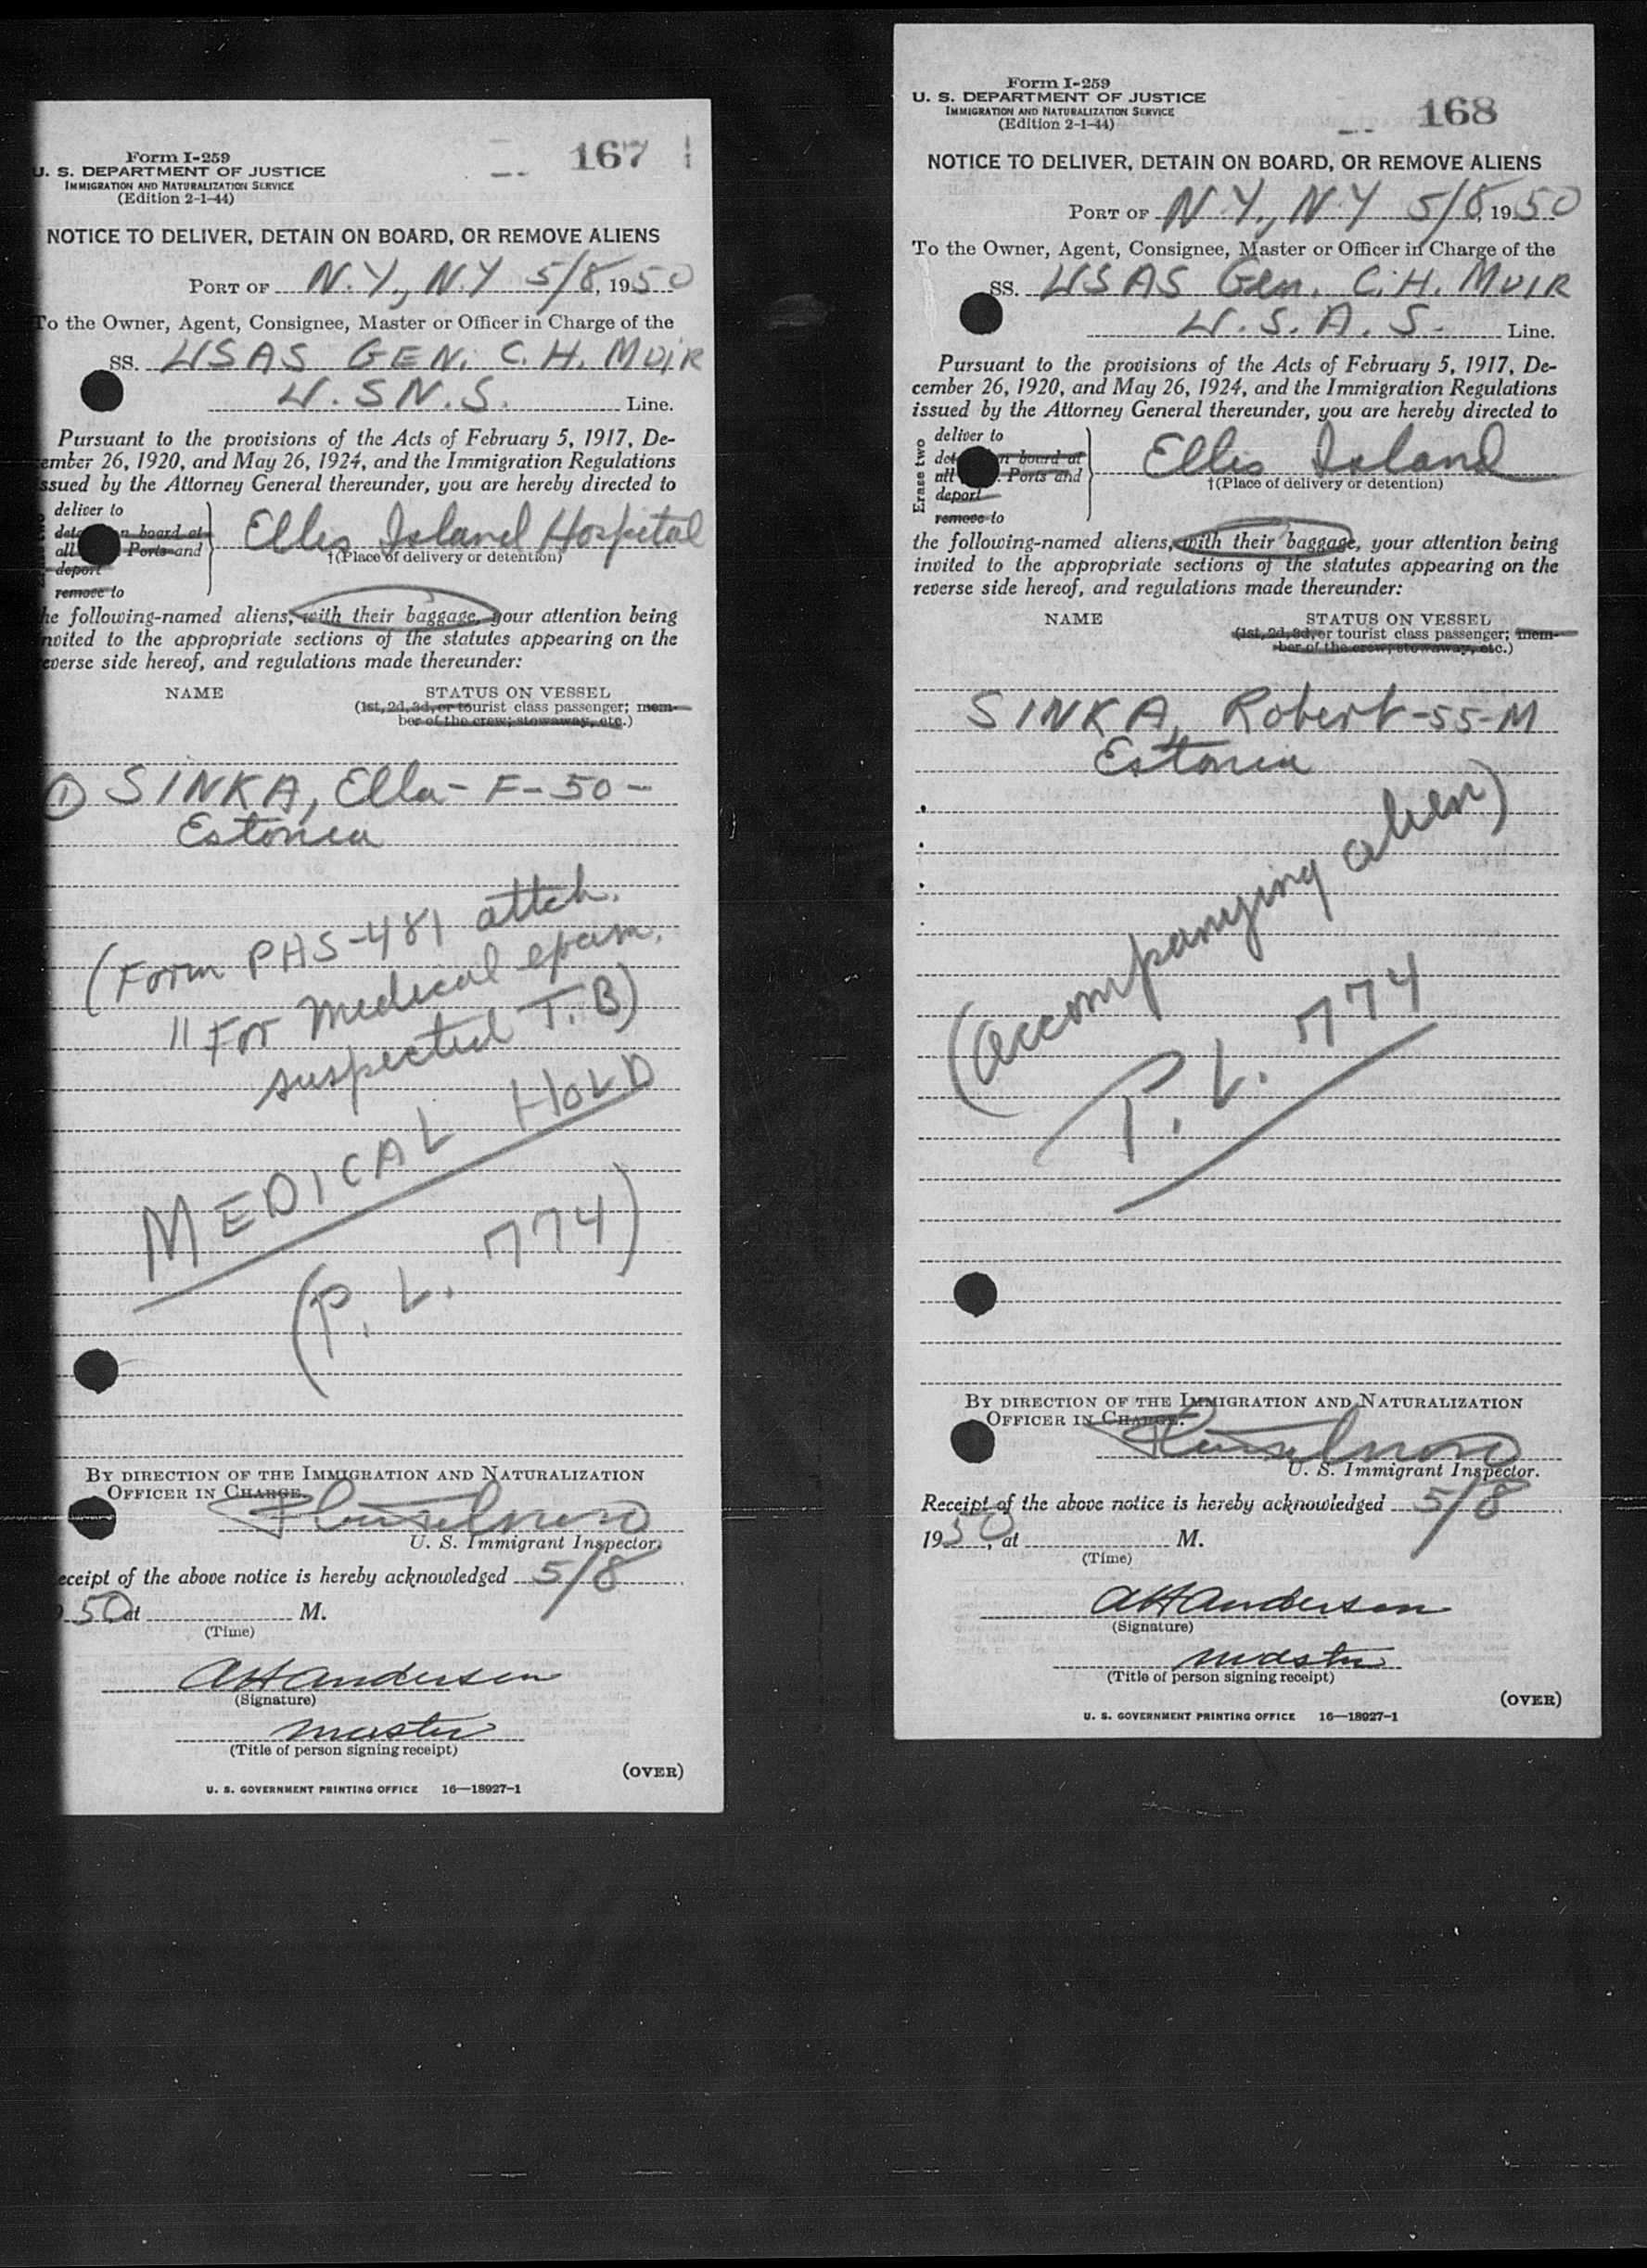 Form I-259
U. S. DEPARTMENT OF JUSTICE
IMMIGRATION AND NATURALIZATION SERVICE
(Edition 2-1-44)
167
NOTICE TO DELIVER, DETAIN ON BOARD, OR REMOVE ALIENS
PORT OF N.Y., N.Y 5/8, 1950
To the Owner, Agent, Consignee, Master or Officer in Charge of the
SS. USAS GEN. C. H. MUIR
U. S N. S. Line.
Pursuant to the provisions of the Acts of February 5, 1917, De-
ember 26, 1920, and May 26, 1924, and the Immigration Regulations
ssued by the Attorney General thereunder, you are hereby directed to
deliver to
deta n board at
all Ports and
deport
remove to
Ellis Island Hospital
†(Place of delivery or detention)
he following-named aliens, with their baggage, your attention being
nvited to the appropriate sections of the statutes appearing on the
everse side hereof, and regulations made thereunder:
NAME STATUS ON VESSEL
(1st, 2d, 3d, or tourist class passenger; mem-
ber of the crew; stowaway, etc.)
① SINKA, Ella - F - 50 -
Estonia
(Form PHS-481 attch.
" For medical exam.
suspected T.B)
MEDICAL HOLD
(P. L. 774)
BY DIRECTION OF THE IMMIGRATION AND NATURALIZATION
OFFICER IN CHARGE.
U. S. Immigrant Inspector.
eceipt of the above notice is hereby acknowledged 5/8
50 at M.
(Time)
A H Andersen
(Signature)
master
(Title of person signing receipt)
(OVER)
U. S. GOVERNMENT PRINTING OFFICE 16—18927-1
Form I-259
U. S. DEPARTMENT OF JUSTICE
IMMIGRATION AND NATURALIZATION SERVICE
(Edition 2-1-44)
168
NOTICE TO DELIVER, DETAIN ON BOARD, OR REMOVE ALIENS
PORT OF N.Y., N.Y 5/8, 1950
To the Owner, Agent, Consignee, Master or Officer in Charge of the
SS. USAS Gen. C. H. MUIR
U. S. A. S. Line.
Pursuant to the provisions of the Acts of February 5, 1917, De-
cember 26, 1920, and May 26, 1924, and the Immigration Regulations
issued by the Attorney General thereunder, you are hereby directed to
Erase two
deliver to
det n board at
all . Ports and
deport
remove to
Ellis Island
†(Place of delivery or detention)
the following-named aliens, with their baggage, your attention being
invited to the appropriate sections of the statutes appearing on the
reverse side hereof, and regulations made thereunder:
NAME STATUS ON VESSEL
(1st, 2d, 3d, or tourist class passenger; mem-
ber of the crew; stowaway, etc.)
SINKA, Robert - 55 - M
Estonia
(accompanying alien)
P. L. 774
BY DIRECTION OF THE IMMIGRATION AND NATURALIZATION
OFFICER IN CHARGE.
U. S. Immigrant Inspector.
Receipt of the above notice is hereby acknowledged 5/8
1950, at M.
(Time)
A H Andersen
(Signature)
master
(Title of person signing receipt)
(OVER)
U. S. GOVERNMENT PRINTING OFFICE 16—18927-1